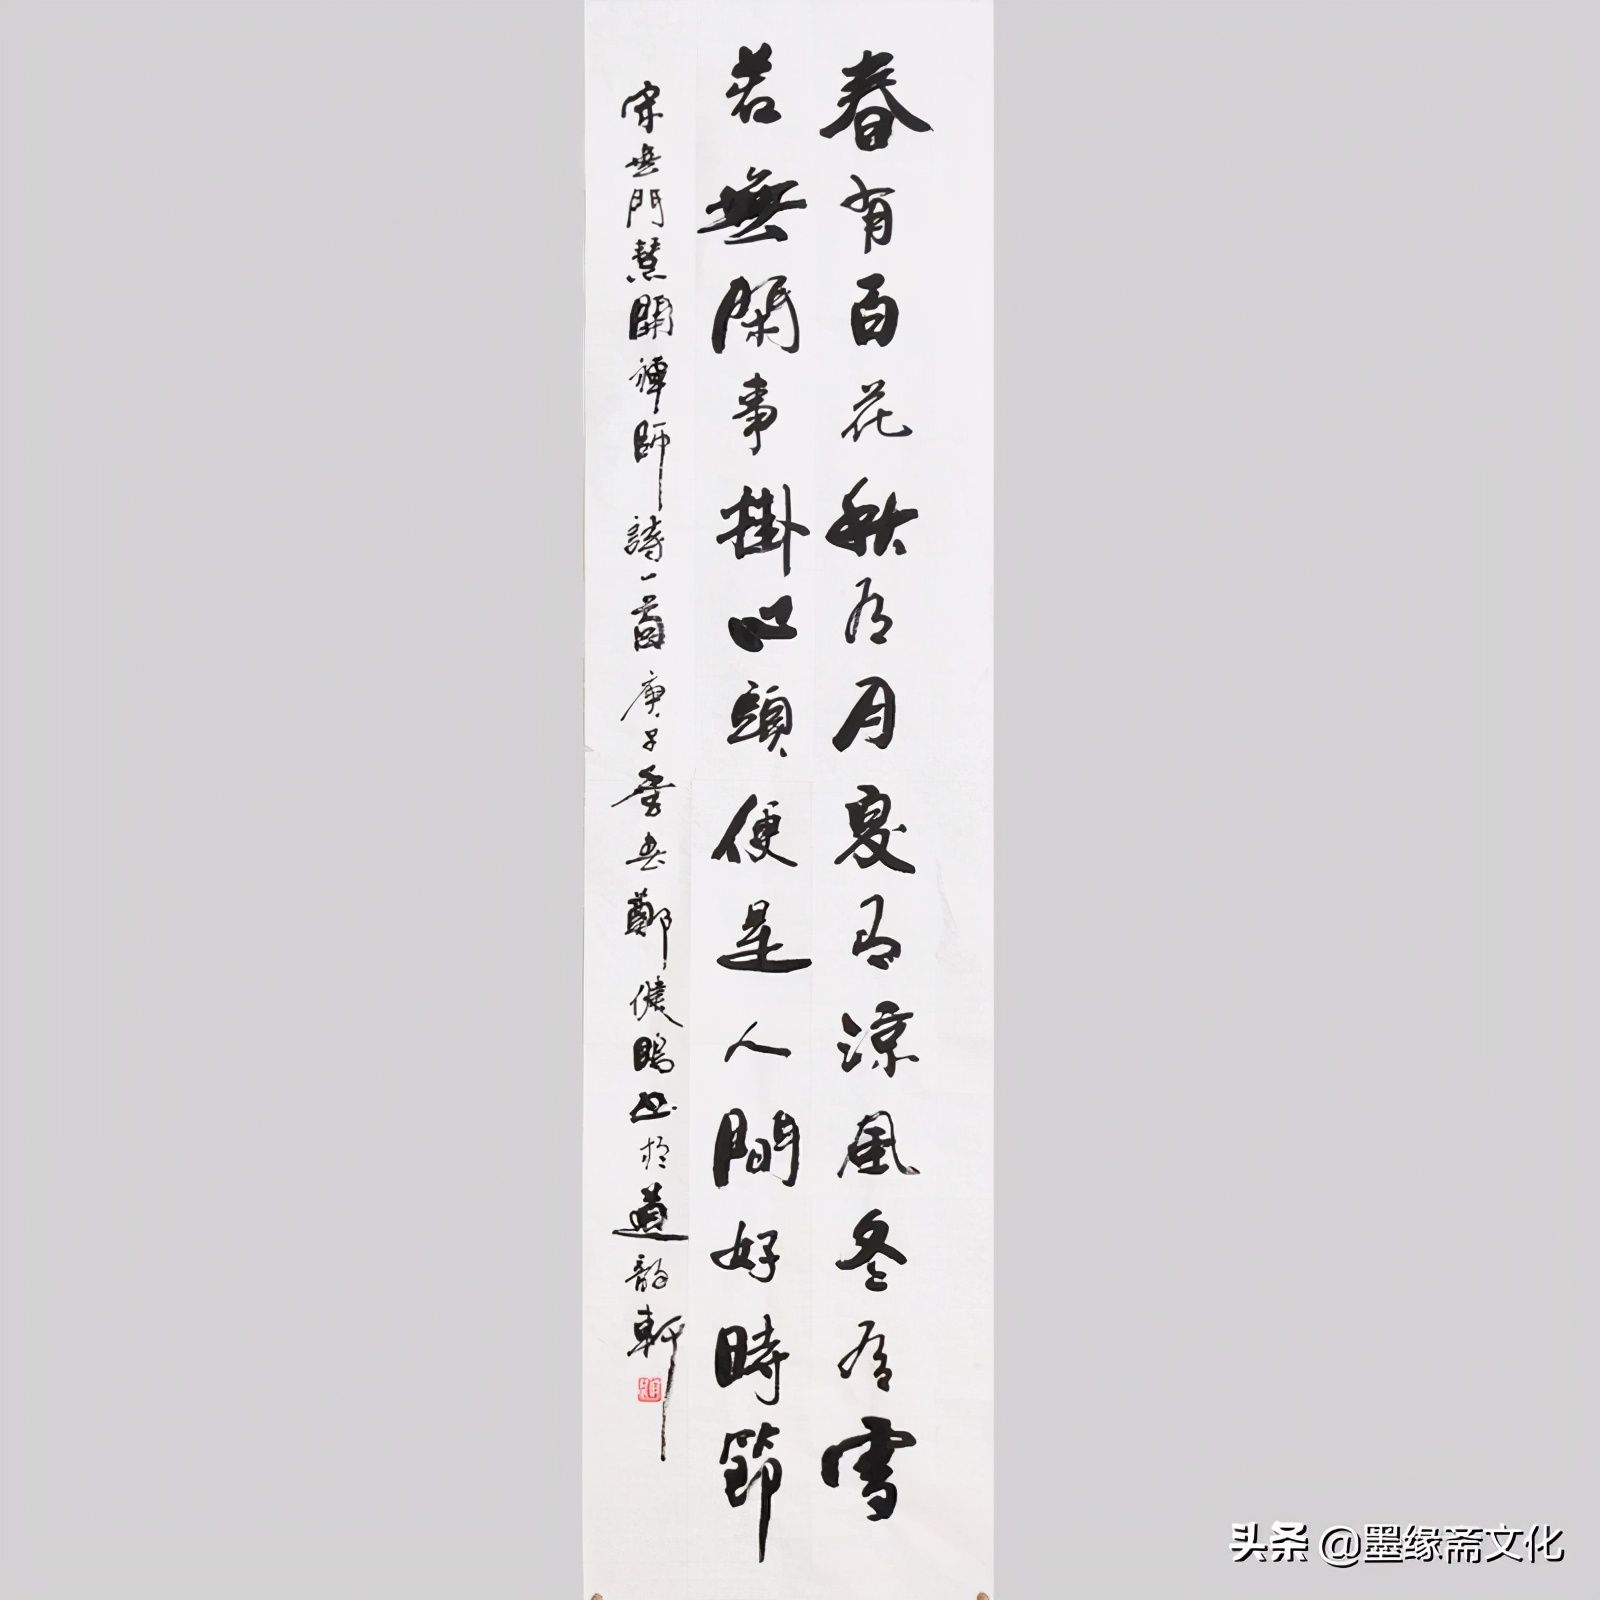 春有百花秋有月夏有涼風冬有雪
若無閑事掛心頭便是人間好時節
宋無門慧開禪師詩一首庚子季春鄭健鵬書於道韻軒
头条 @墨缘斋文化